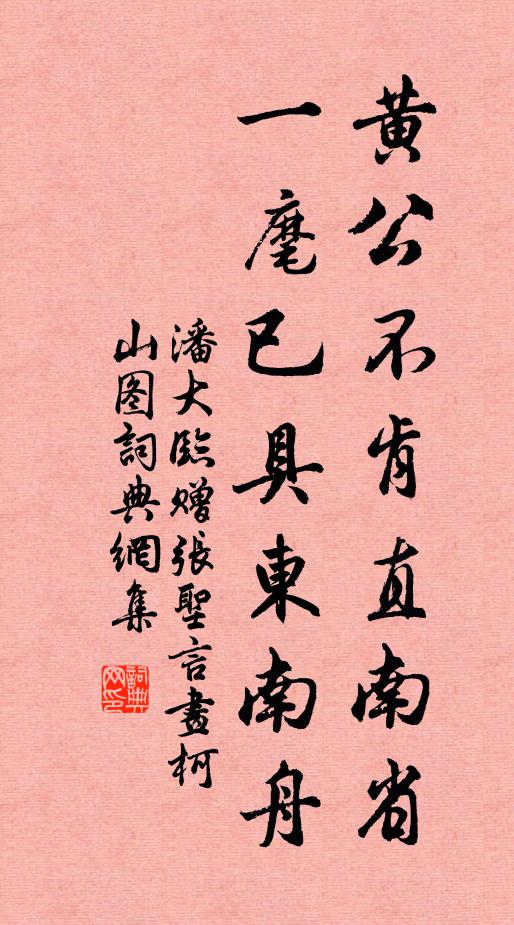 黃公不肯直南省
一麾已具東南舟
潘大臨贈張聖言畫柯
山图詞典網集
詞典网印